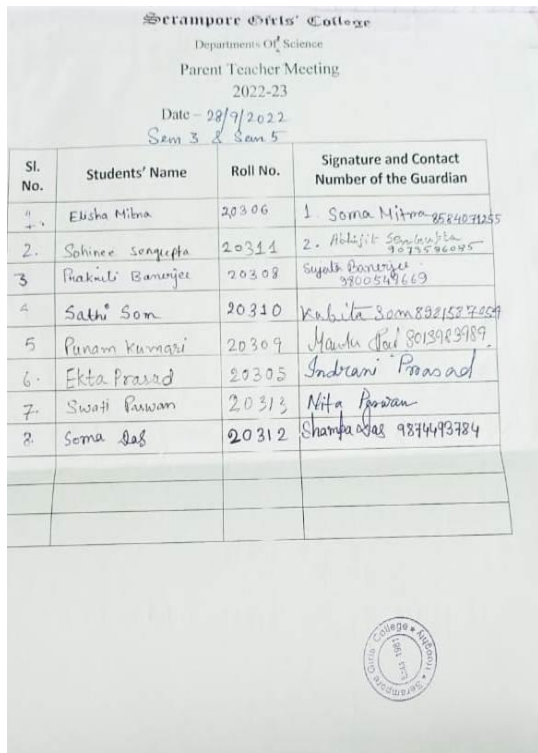 Serampore Girls' College
Departments Of Science
Parent Teacher Meeting
2022-23
Date – 28/9/2022
Sem 3 & Sem 5
Sl. No. Students' Name Roll No. Signature and Contact Number of the Guardian
1. Elisha Mitra 20306 1. Soma Mitra 8584071255
2. Sohinee Sengupta 20311 2. Abhijit Sengupta
3 Prakriti Banerjee 20308 Sujata Banerjee 9800549669
4 Sathi Som 20310 Kabita Som
5 Punam Kumari 20309 8013983989
6. Ekta Prasad 20305 Indrani Prasad
7. Swati Paswan 20313 Nita Paswan
8. Soma Das 20312 Shampa Das 9874493784
Serampore Girls' College ★ Hooghly ★
Estd. 1981